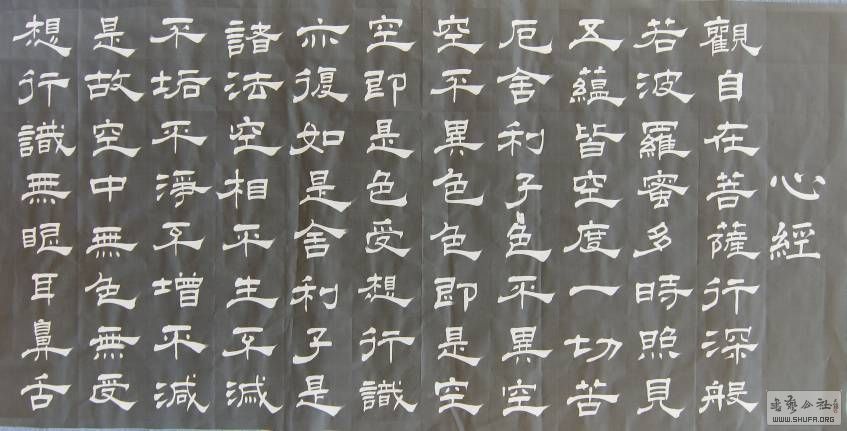 心經
觀自在菩薩行深般
若波羅蜜多時照見
五蘊皆空度一切苦
厄舍利子色不異空
空不異色色即是空
空即是色受想行識
亦復如是舍利子是
諸法空相不生不滅
不垢不淨不增不減
是故空中無色無受
想行識無眼耳鼻舌
書藝公社
WWW.SHUFA.ORG